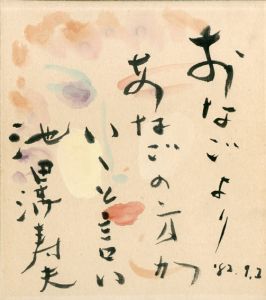 おなごより
あなごの方が
いいと言い
池田満寿夫